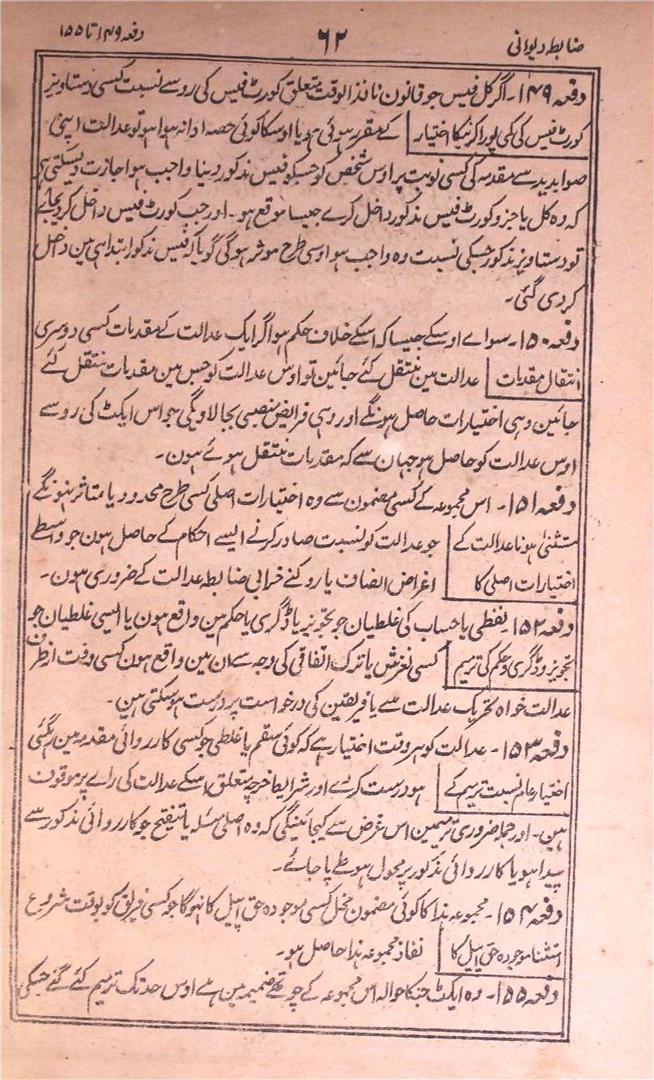 ضابطہ دیوانی ۶۲ دفعہ ۱۴۹ تا ۱۵۵
دفعہ ۱۴۹۔ اگر کل فیس جو قانون نافذ الوقت متعلق کورٹ فیس کی رو سے نسبت کسی دستاویز
کورٹ فیس کی کمی پورا کرنیکا اختیار کے مقرر ہوئی ہو یا اوسکا کوئی حصہ ادا نہ ہوا ہو تو عدالت اپنی
صوابدید سے مقدمہ کی کسی نوبت پر اوس شخص کو جسکو فیس مذکور دینا واجب ہو اجازت دیسکتی ہی
کہ وہ کل یا جزو کورٹ فیس مذکور داخل کرے جیسا موقع ہو۔ اور جب کورٹ فیس داخل کردیجائے
تو دستاویز مذکور جسکی نسبت وہ واجب ہو اوسی طرح موثر ہوگی گویا کہ فیس مذکور ابتدا ہی مین داخل
کردی گئی۔
دفعہ ۱۵۰۔ سواے اوسکے جیسا کہ اسکے خلاف حکم ہو اگر ایک عدالت کے مقدمات کسی دوسری
انتقال مقدمات عدالت مین منتقل کئے جائین تو اوس عدالت کو جس مین مقدمات منتقل کئے
جائین وہی اختیارات حاصل ہونگے اور وہی فرایض منصبی بجا لاویگی جو اس ایکٹ کی رو سے
اوس عدالت کو حاصل ہو جہان سے کہ مقدمات منتقل ہوئے ہون۔
دفعہ ۱۵۱۔ اس مجموعہ کے کسی مضمون سے وہ اختیارات اصلی کسی طرح محدود یا متاثر نہونگے
مستثنیٰ ہونا عدالت کے جو عدالت کو نسبت صادر کرنے ایسے احکام کے حاصل ہون جو واسطے
اختیارات اصلی کا اغراض انصاف یا روکنے خرابی ضابطہ عدالت کے ضروری ہون۔
دفعہ ۱۵۲۔ لفظی یا حساب کی غلطیان جو تجویز یا ڈگری یا حکم مین واقع ہون یا ایسی غلطیان جو
تجویز و ڈگری و حکم کی ترمیم کسی لغزش یا ترک اتفاقی کی وجہ سے ان مین واقع ہون کسی وقت از طرف
عدالت خواہ بتحریک عدالت سے یا فریقین کی درخواست پر درست ہو سکتی ہین۔
دفعہ ۱۵۳۔ عدالت کو ہر وقت اختیار ہے کہ کوئی سقم یا غلطی جو کسی کارروائی مقدمہ مین رہگئی
اختیار عام نسبت ترمیم کے ہو درست کرے اور شرایط خرچہ متعلق اسکے عدالت کی راے پر موقوف
ہین۔ اور جملہ ضروری ترمیمین اس غرض سے کیجائینگی کہ وہ اصلی مسئلہ یا تنقیح جو کارروائی مذکور سے
پیدا ہو یا کارروائی مذکور پر محمول ہو طے پا جائے۔
دفعہ ۱۵۴۔ مجموعہ ہذا کا کوئی مضمون مخل کسی موجودہ حق اپیل کا نہوگا جو کسی فریق کو بوقت شروع
استثنا موجودہ حق اپیل کا نفاذ مجموعہ ہذا حاصل ہو۔
دفعہ ۱۵۵۔ وہ ایکٹ جنکا حوالہ اس مجموعہ کے چوتھے ضمیمہ مین ہے اوس حد تک ترمیم کئے گئے جسکی